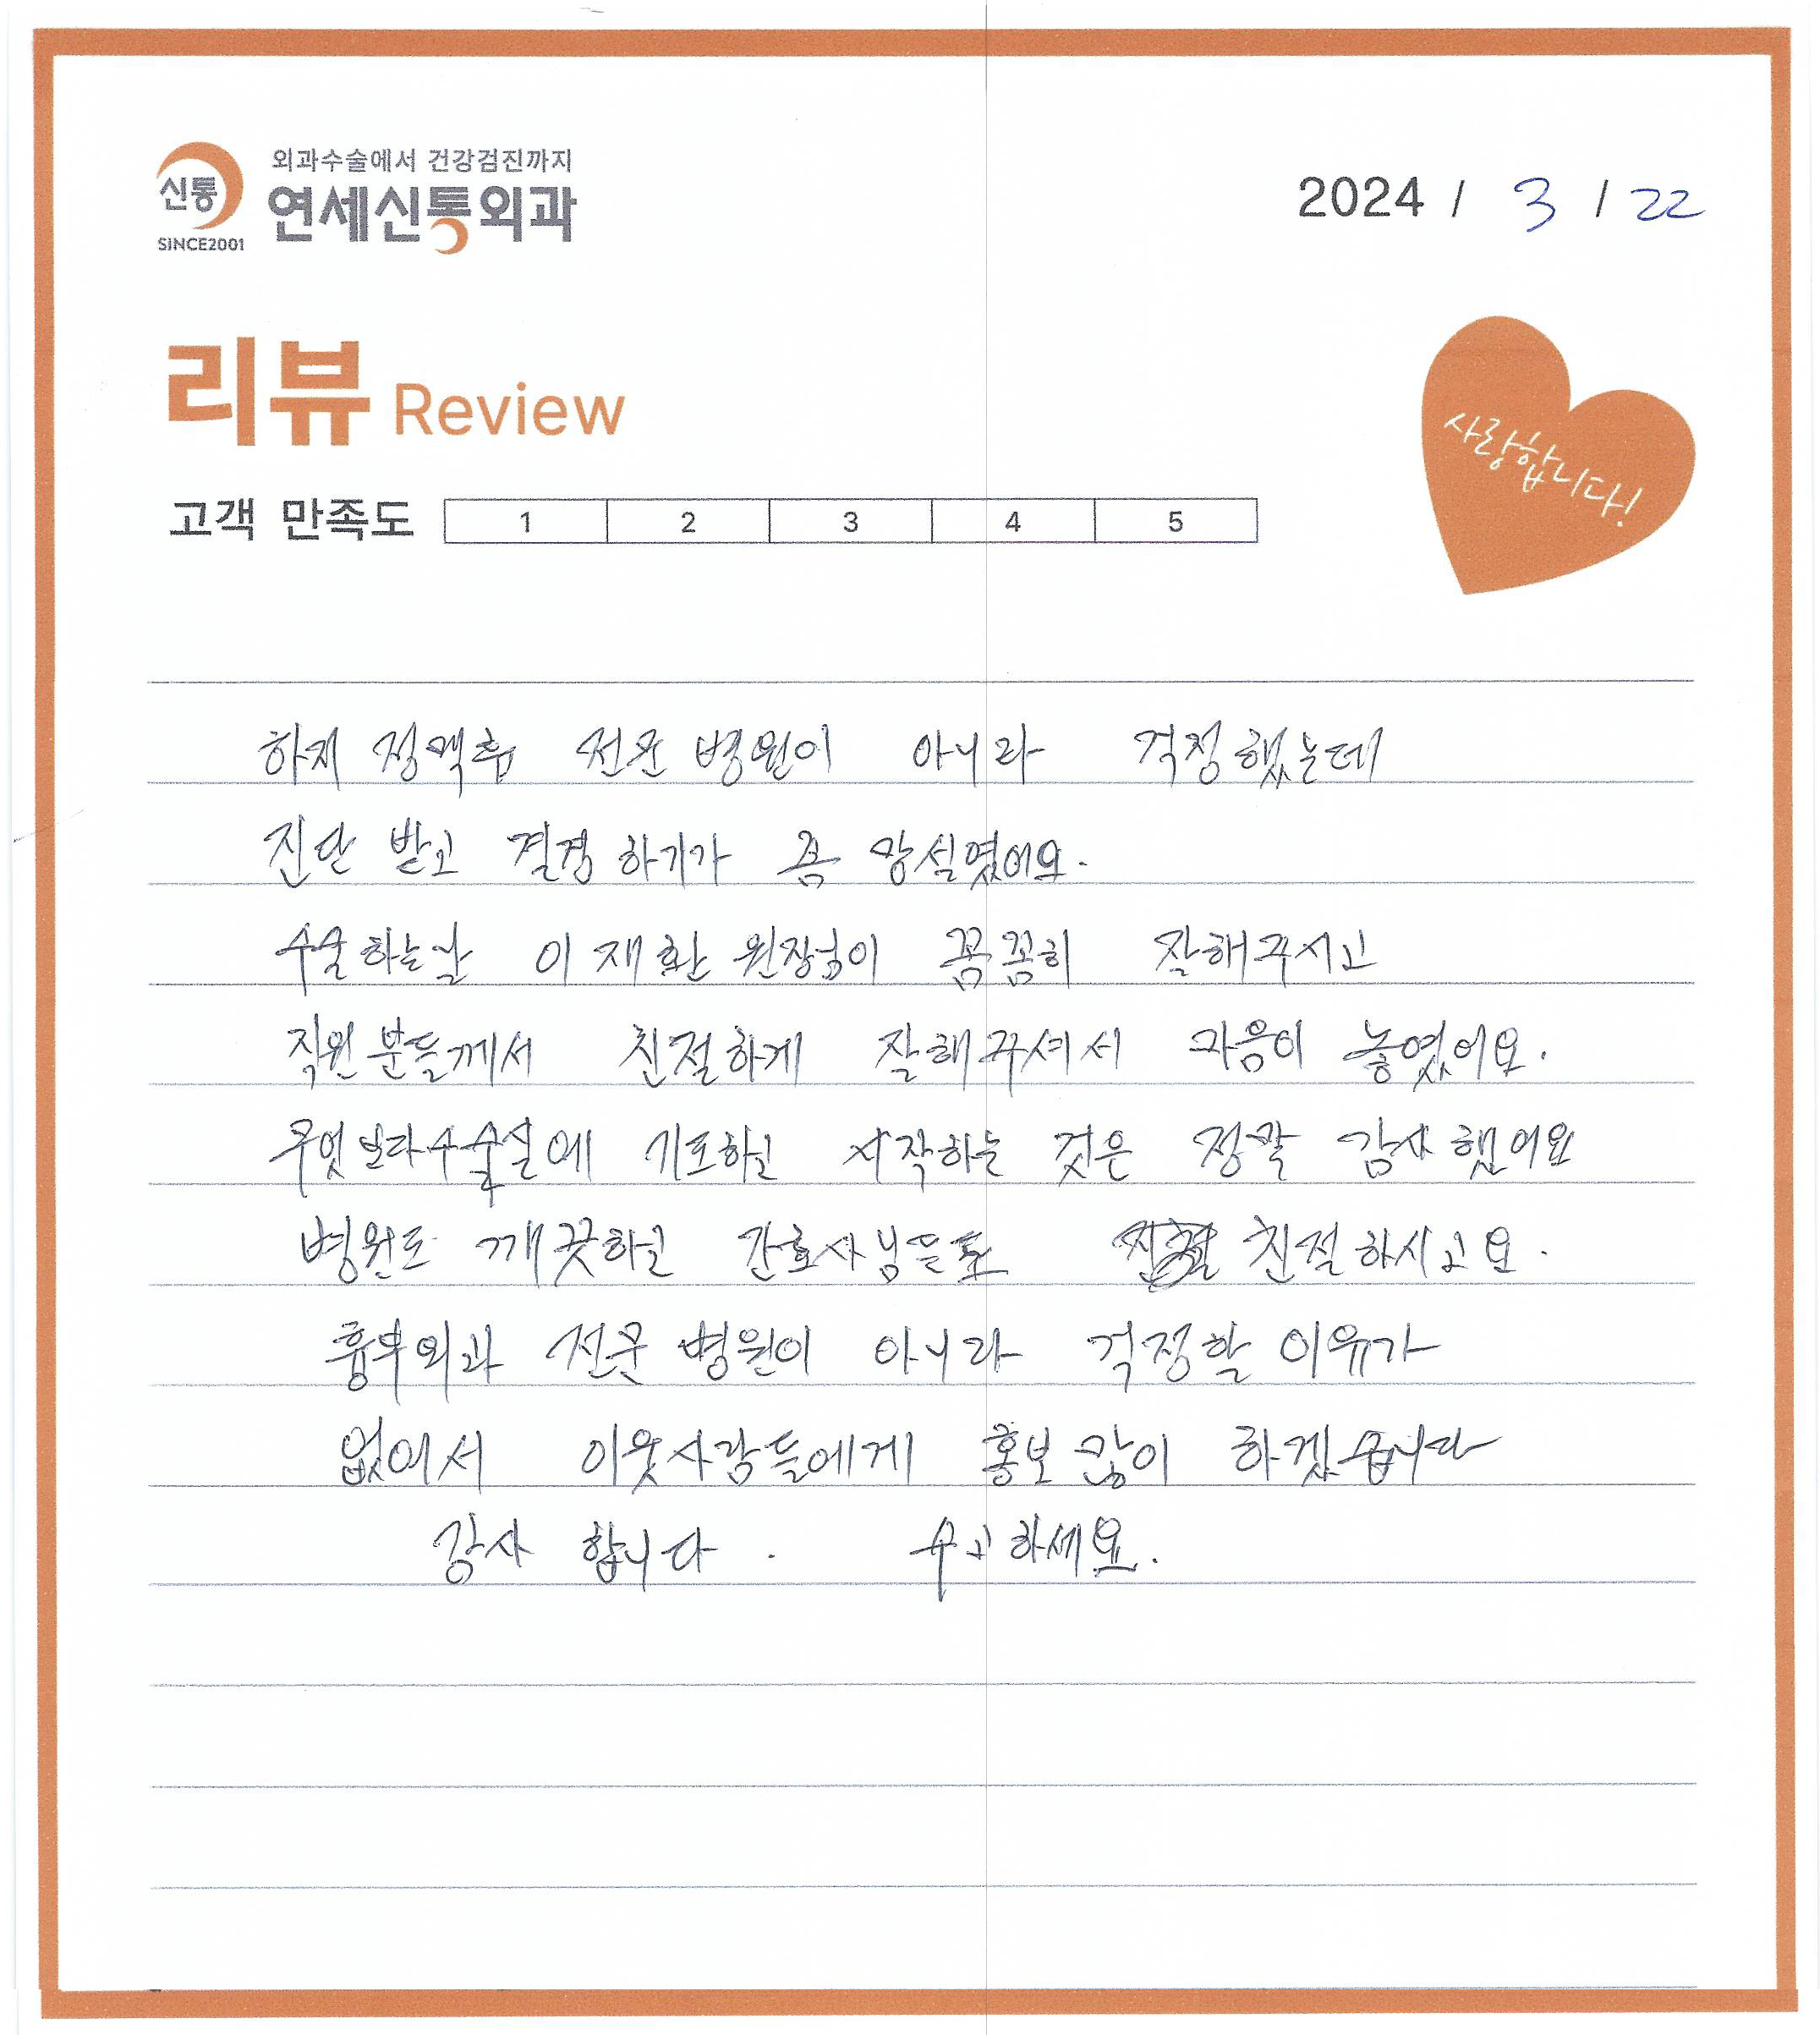 외과수술에서 건강검진까지
신통
연세신통외과
SINCE2001
2024 / 3 / 22
리뷰 Review
사랑합니다!
고객 만족도 1 2 3 4 5
하지 정맥츔 전문 병원이 아니라 걱정했는데
진단 받고 결정 하기가 좀 망설였어요.
수술하는날 이재환 원장님이 꼼꼼히 잘해주시고
직원분들께서 친절하게 잘해주셔서 마음이 놓였어요.
무엇보다수술실에 기도하고 시작하는 것은 정말 감사했어요
병원도 깨끗하고 간호사님들도 친절하시고요.
흉부외과 전문 병원이 아니라 걱정할 이유가
없어서 이웃사람들에게 홍보 많이 하겠습니다
감사 합니다. 수고하세요.